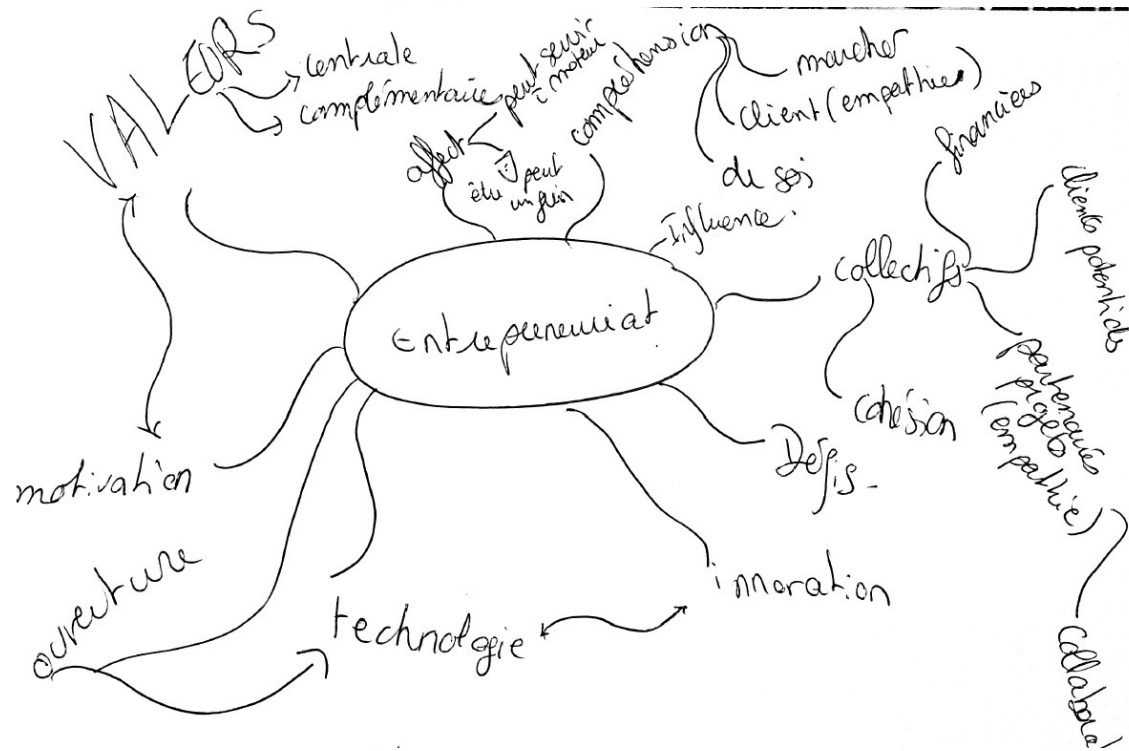 VALEURS
centrale
complémentaire
affect
peut servir
moteur
peut
être
un frein
compréhension
marcher
client (empathie)
de soi
Influence.
Entrepreneuriat
collectifs
financiers
clients potentiels
partenaires
projets
(empathie)
collaborat
cohésion
Défis
innovation
technologie
ouverture
motivation